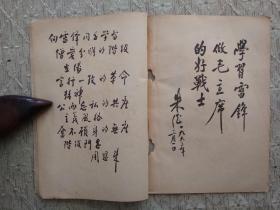 向雷锋同志学习
憎爱分明的阶级
立场
言行一致的革命
精神
公而忘私的共产
主义风格
奋不顾身的无产
阶级斗志
周恩来
學習雷鋒
做毛主席
的好戰士
朱德
一九六三年